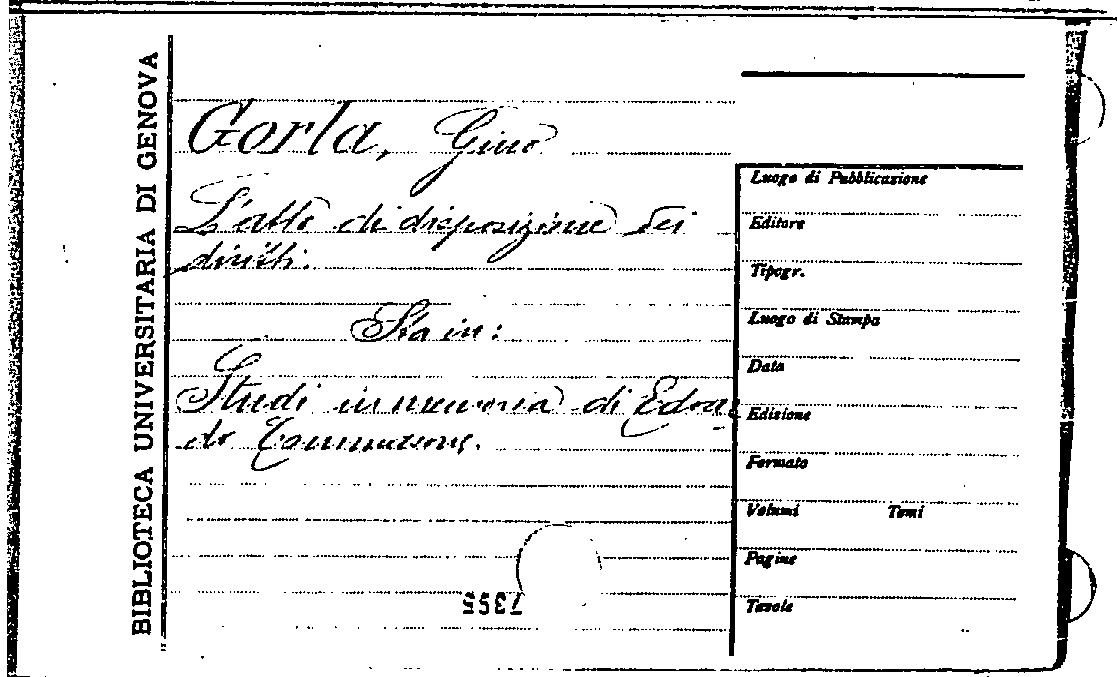 BIBLIOTECA UNIVERSITARIA DI GENOVA
Gorla, Gino
L'atto di disposizione dei
diritti.
Sta in:
Studi in memoria di Edoar
do
7355
Luogo di Pubblicazione
Editore
Tipogr.
Luogo di Stampa
Data
Edizione
Formato
Volumi Tomi
Pagine
Tavole